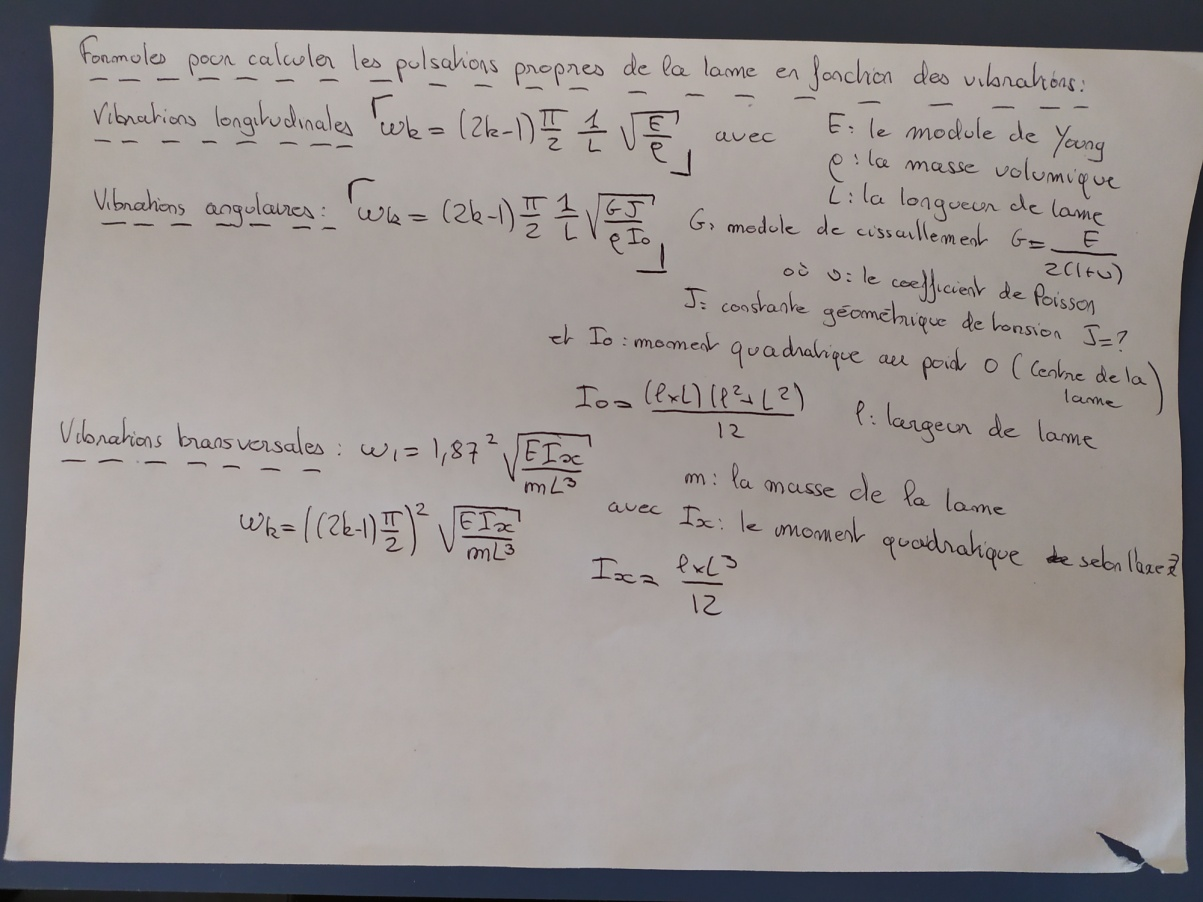 Formules pour calculer les pulsations propres de la lame en fonction des vibrations :
Vibrations longitudinales ωk = (2k-1) π/2 1/L √(E/ρ) avec E : le module de Young
ρ : la masse volumique
L : la longueur de lame
Vibrations angulaires : ωk = (2k-1) π/2 1/L √(GJ/ρI₀) G, module de cissaillement G = E/2(1+υ)
où υ : le coefficient de Poisson
J = constante géométrique de torsion J=?
et I₀ : moment quadratique au point O (Centre de la lame)
I₀ = (l×L)(l²+L²)/12 l : largeur de lame
Vibrations transversales : ω₁ = 1,87² √(EIx/mL³) m : la masse de la lame
ωk = ((2k-1) π/2)² √(EIx/mL³) avec Ix : le moment quadratique selon l'axe x
Ix = l×L³/12